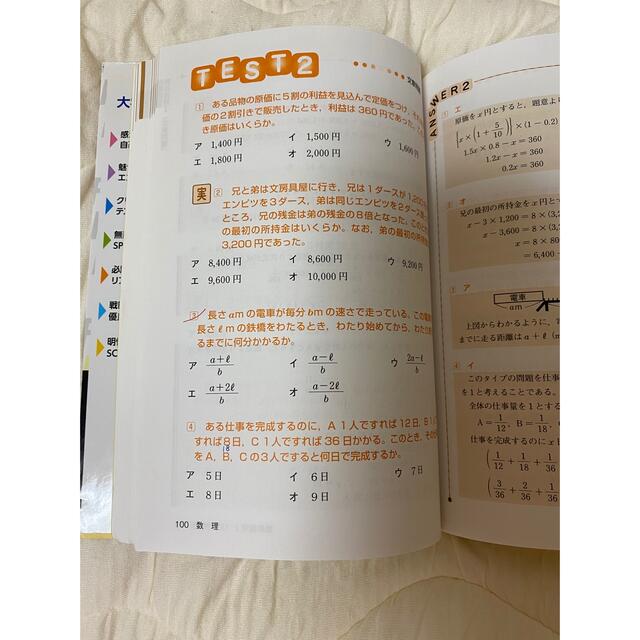 TEST2
1 ある品物の原価に5割の利益を見込んで定価をつけ,
価の2割引きで販売したとき,利益は360円であった。
き原価はいくらか。
ア 1,400円 イ 1,500円 ウ 1,600円
エ 1,800円 オ 2,000円
実 2 兄と弟は文房具屋に行き,兄は1ダースが1,200
エンピツを3ダース,弟は同じエンピツを2ダース
ところ,兄の残金は弟の残金の8倍となった。
の最初の所持金はいくらか。なお,弟の最初の所持
3,200円であった。
ア 8,400円 イ 8,600円 ウ 9,200円
エ 9,600円 オ 10,000円
3 長さamの電車が毎分bmの速さで走っている。この電
長さℓmの鉄橋をわたるとき,わたり始めてから,わたり
るまでに何分かかるか。
ア a+ℓ/b イ a−ℓ/b ウ 2a−ℓ/b
エ a+2ℓ/b オ a−2ℓ/b
4 ある仕事を完成するのに,A1人ですれば12日,B1
すれば8日,C1人ですれば36日かかる。このとき,その
18
をA,B,Cの3人ですると何日で完成するか。
ア 5日 イ 6日 ウ 7日
エ 8日 オ 9日
100 数理
ANSWER2
1 エ
原価をx円とすると,題意よ
{x×(1+5/10)}×(1−0.2)
1.5x×0.8−x=360
1.2x−x=360
0.2x=360
2 オ
兄の最初の所持金をx円と
x−3×1,200=8×(3,
x−3,600=8×(3,
x=8×80
=6,400
3 ア
電車
am
上図からわかるように,
までに走る距離はa+ℓ(m
4 イ
このタイプの問題を仕事
を1と考えることである。
全体の仕事量を1とする
A=1/12, B=1/18,
仕事を完成するのにx日
(1/12+1/18+1/36
(3/36+2/36+1/36